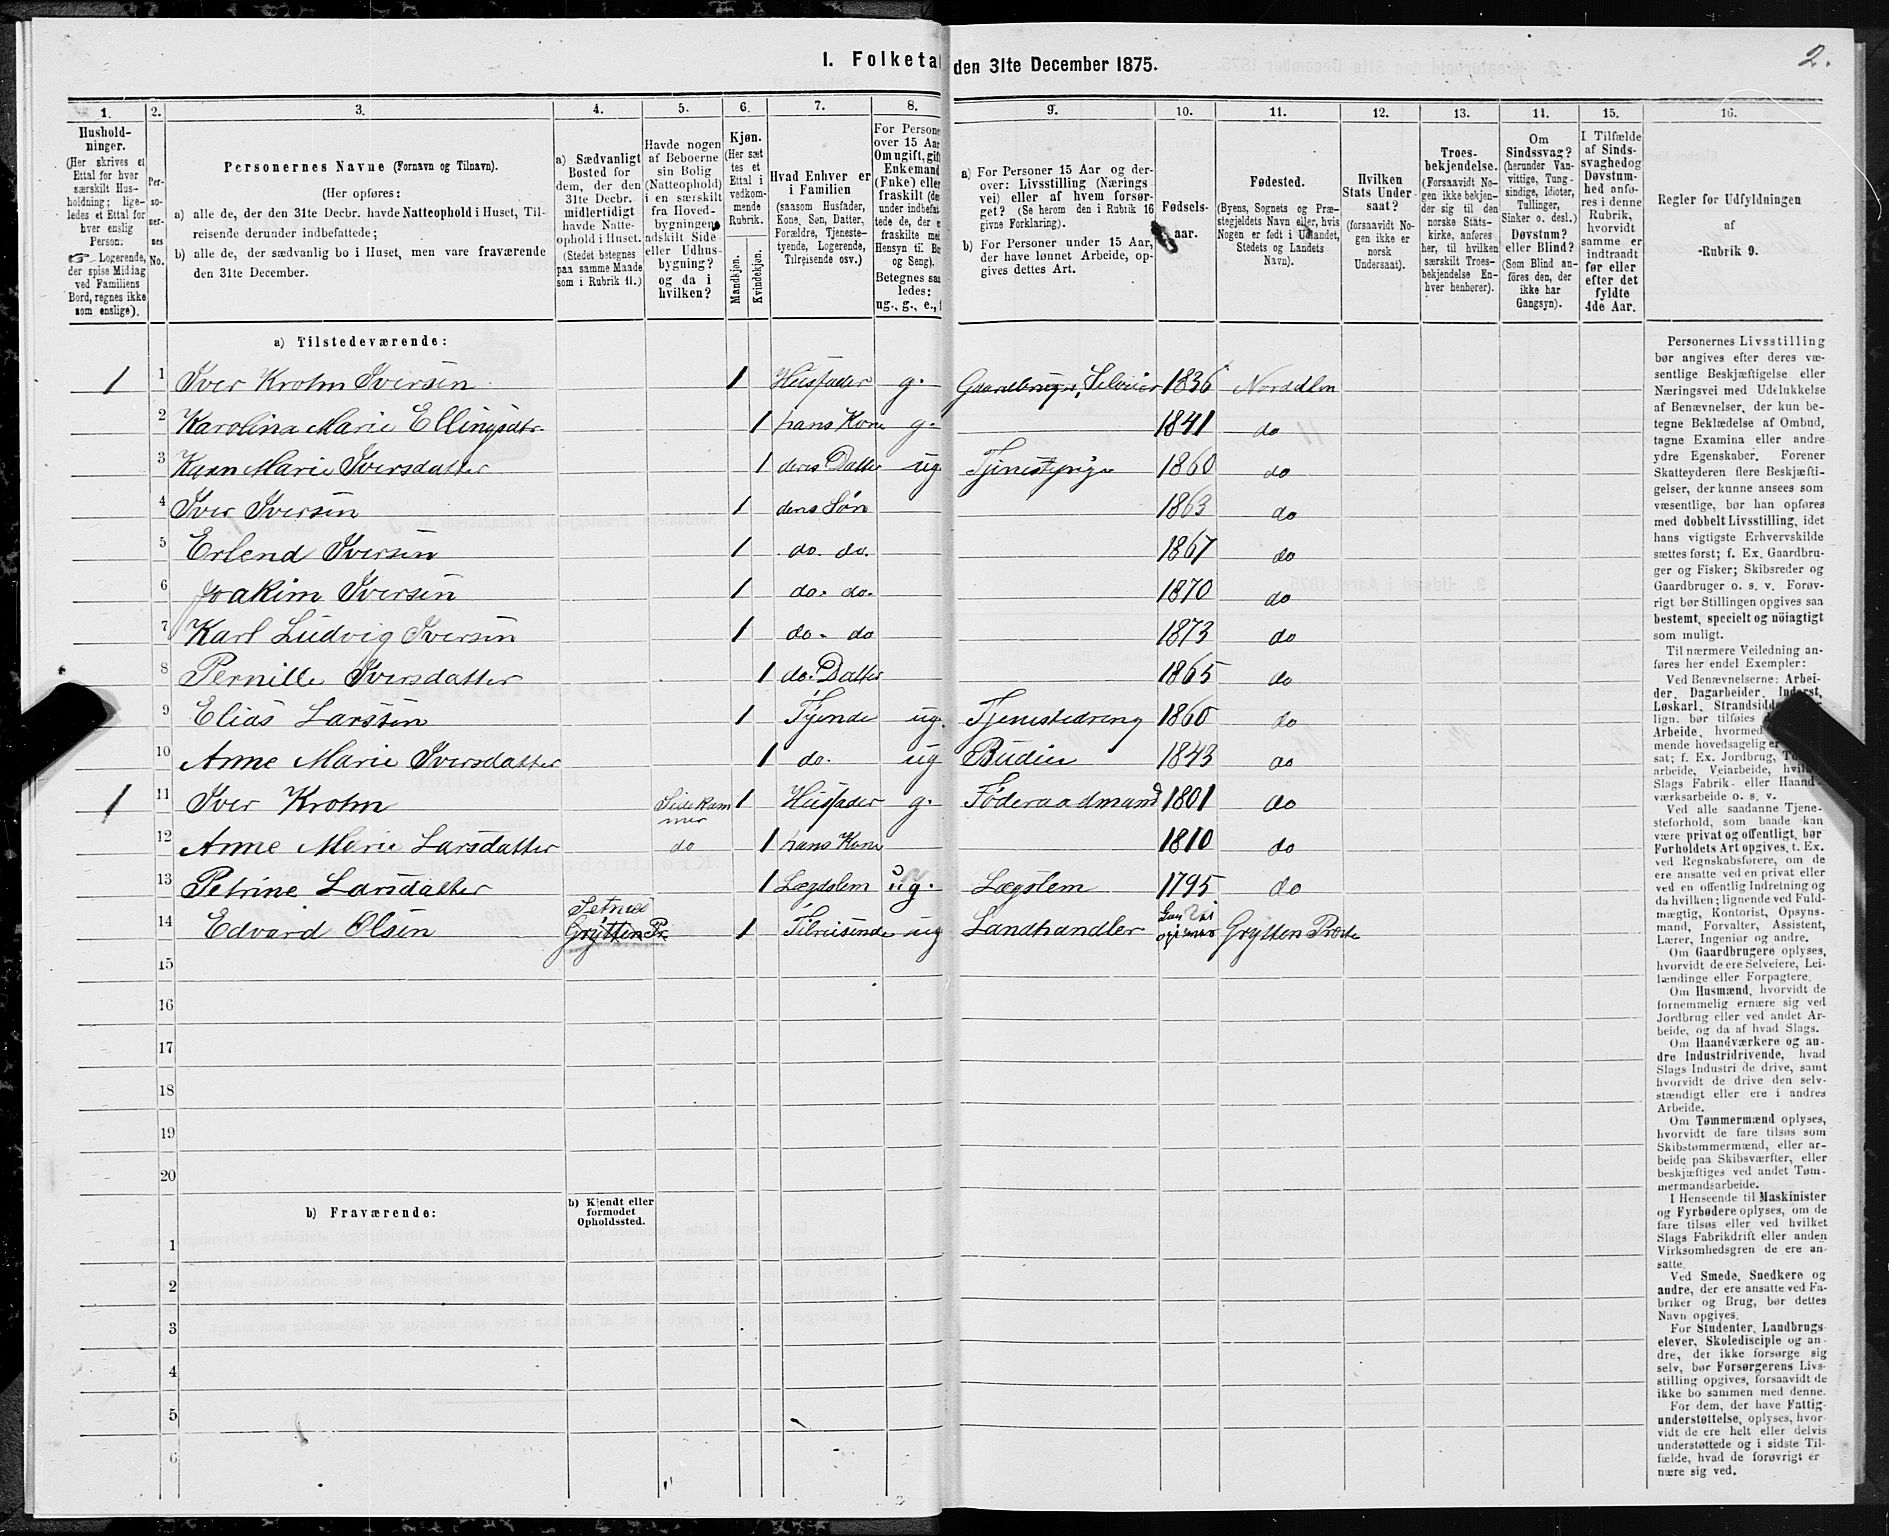 I. Folketa den 31te December 1875.
2.
1.
Hushold-
ninger.
(Her skrives et
Ettal for hver
særskilt Hus-
holdning; lige-
ledes et Ettal for
hver enslig
Person.
Logerende,
der spise Middag
ved Familiens
Bord, regnes ikke
som enslige).
2.
Per-
so-
ner-
nes
No.
3.
Personernes Navne (Fornavn og Tilnavn).
(Her opføres:
a) alle de, der den 31te Decbr. havde Natteophold i Huset, Til-
reisende derunder indbefattede;
b) alle de, der sædvanlig bo i Huset, men vare fraværende
den 31te December.
4.
a) Sædvanligt
Bosted for
dem, der den
31te Decbr.
midlertidigt
havde Natte-
ophold i Huset.
(Stedet betegnes
paa samme Maade
som i Rubrik 11.)
5.
Havde nogen
af Beboerne
sin Bolig
(Natteophold)
i en særskilt
fra Hoved-
bygningen
adskilt Side-
eller Udhus-
bygning?
og da i
hvilken?
6.
Kjøn.
(Her sæt
tes et
Ettal i
vedkom-
mende
Rubrik.
Mandkjøn.
Kvindekjøn.
7.
Hvad Enhver er
i Familien
(saasom Husfader,
Kone, Søn, Datter,
Forældre, Tjeneste-
tyende, Logerende,
Tilreisende osv.)
8.
For Persone
over 15 Aar
Om ugift, gift
Enkemand
(Enke) eller
fraskilt (de
under indbefat
tede de, der e
fraskilte med
Hensyn til Bo
og Seng).
Betegnes saa
ledes:
ug., g., e., f
9.
a) For Personer 15 Aar og der-
over: Livsstilling (Nærings
vei) eller af hvem forsør-
get? (Se herom den i Rubrik 16
givne Forklaring).
b) For Personer under 15 Aar,
der have lønnet Arbeide, op-
gives dettes Art.
10.
Fødsels-
aar.
11.
Fødested.
(Byens, Sognets og Præ-
stegjeldets Navn eller, hvis
Nogen er født i Udlandet,
Stedets og Landets
Navn).
12.
Hvilken
Stats Under-
saat?
(forsaavidt No-
gen ikke er
norsk
Undersaat).
13.
Troes-
bekjendelse.
(Forsaavidt No-
gen ikke bekjen-
der sig til den
norske Stats-
kirke, anføres
her, til hvilken
særskilt Troes-
bekjendelse En-
hver henhører).
14.
Om
Sindssvag?
(herunder Van-
vittige, Tung-
sindige, Idioter,
Tullinger,
Sinker o. desl.)
Døvstum?
eller Blind?
(Som Blind an-
føres den, der
ikke har
Gangsyn).
15.
I Tilfælde
af Sinds-
svaghed og
Døvstum-
hed anfø-
res i denne
Rubrik,
hvorvidt
samme er
indtraadt
før eller
efter det
fyldte
4de Aar.
16.
Regler for Udfyldningen
af
Rubrik 9.
a) Tilstedeværende:
1 1 Iver Krohn Iversen 1 Husfader g. Gaardbruger, Selveier 1836 Norddalen
2 Karolina Marie Ellingsdtr 1 hans Kone g. 1841 do
3 Karn Marie Iversdatter 1 deres Datter ug Tjenestepige 1860 do
4 Iver Iversen 1 dens Søn 1863 do
5 Erlend Iversen 1 do. do. 1867 do
6 Joakim Iversen 1 do. do. 1870 do
7 Karl Ludvig Iversen 1 do. do 1873 do
8 Pernille Iversdatter 1 do. Datter 1865 do
9 Elias Larssen 1 Tjende ug. Tjenestedreng 1860 do
10 Anne Marie Iversdatter 1 do. ug Budeie 1843 do
1 11 Iver Krohn Sidekam
mer 1 Husfader g. Føderaadmand 1801 do
12 Anne Marie Larsdatter do 1 hans Kone 1810 do
13 Petrine Larsdatter 1 Lægdslem ug. Lægslem 1795 do
14 Edvard Olsen Setnes
Grytten Pr. 1 Tilreisende ug Landhandler Grytten Præste
15
16
17
18
19
20
b) Fraværende:
b) Kjendt eller
formodet
Opholdssted.
1
2
3
4
5
6
Personernes Livsstilling
bør angives efter deres væ-
sentlige Beskjæftigelse eller
Næringsvei med Udelukkelse
af Benævnelser, der kun be-
tegne Beklædelse af Ombud,
tagne Examina eller andre
ydre Egenskaber. Forener
Skatteyderen flere Beskjæfti-
gelser, der kunne ansees som
væsentlige, bør han opføres
med dobbelt Livsstilling, idet
hans vigtigste Erhvervskilde
sættes først; f. Ex. Gaardbru-
ger og Fisker; Skibsreder og
Gaardbruger o. s. v. Forøv-
rigt bør Stillingen opgives saa
bestemt, specielt og nöiagtigt
som muligt.
Til nærmere Veiledning an-
føres her endel Exempler:
Ved Benævnelserne: Arbei-
der, Dagarbeider, Inderst,
Løskarl, Strandsidd
lign. bør tilføies
Arbeide, hvormed
mende hovedsagelig er
sat; f. Ex. Jordbrug,
arbeide, Veiarbeide,
Slags Fabrik- eller Haand
værksarbeide o. s. v.
Ved alle saadanne Tjene-
steforhold, som baade kan
være privat og offentligt, bør
Forholdets Art opgives, t. Ex.
ved Regnskabsførere, om de
ere ansatte ved en privat eller
ved en offentlig Indretning og
da hvilken; lignende ved Fuld-
mægtig, Kontorist, Opsyns-
mand, Forvalter, Assistent,
Lærer, Ingeniør og andre.
Om Gaardbrugere oplyses,
hvorvidt de ere Selveiere, Lei-
lændinge eller Forpagtere.
Om Husmænd, hvorvidt de
fornemmelig ernære sig ved
Jordbrug eller ved andet Ar-
beide, og da af hvad Slags.
Om Haandværkere og an-
dre Industridrivende, hvad
Slags Industri de drive, samt
hvorvidt de drive den selv-
stændigt eller ere i andres
Arbeide.
Om Tømmermænd oplyses,
hvorvidt de fare tilsøs som
Skibstømmermænd, eller ar-
beide paa Skibsværfter, eller
beskjæftiges ved andet Tøm-
mermandsarbeide.
I Henseende til Maskinister
og Fyrbødere oplyses, om de
fare tilsøs eller ved hvilket
Slags Fabrikdrift eller anden
Virksomhedsgren de ere an-
satte.
Ved Smede, Snedkere og
andre, der ere ansatte ved Fa-
briker og Brug, bør dettes
Navn opgives.
For Studenter, Landbrugs-
elever, Skoledisciple og an-
dre, der ikke forsørge sig
selv, bør Forsørgerens Livs-
stilling opgives, forsaavidt de
ikke bo sammen med denne.
For dem, der have Fattig-
understøttelse, oplyses, hvor-
vidt de ere helt eller delvis
understøttede og i sidste Til-
fælde, hvad de forøvrigt er
nære sig ved.